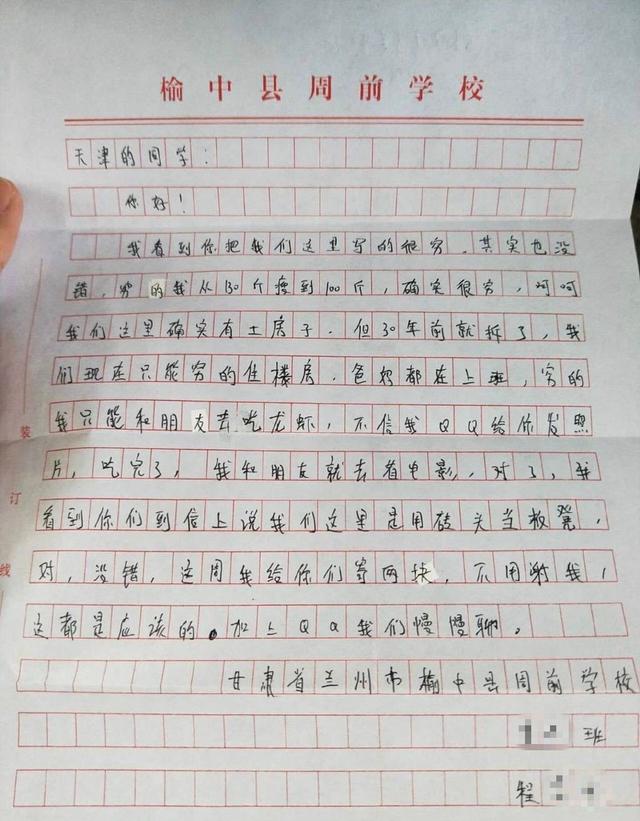 榆中县周前学校
天津的同学：
你好！
我看到你把我们这里写的很穷，其实也没
错，穷的我从130斤瘦到100斤，确实很穷，呵呵
我们这里确实有土房子．但30年前就拆了，我
们现在只能穷的住楼房．爸妈都在上班，穷的
我只能和朋友去吃龙虾，不信我QQ给你发照
片，吃完了，我和朋友就去看电影，对了，我
看到你们到信上说我们这里是用砖头当板凳，
对，没错，这周我给你们寄两块，不用谢我，
这都是应该的。加上QQ我们慢慢聊。
甘肃省兰州市榆中县周前学校
班
程
装
订
线